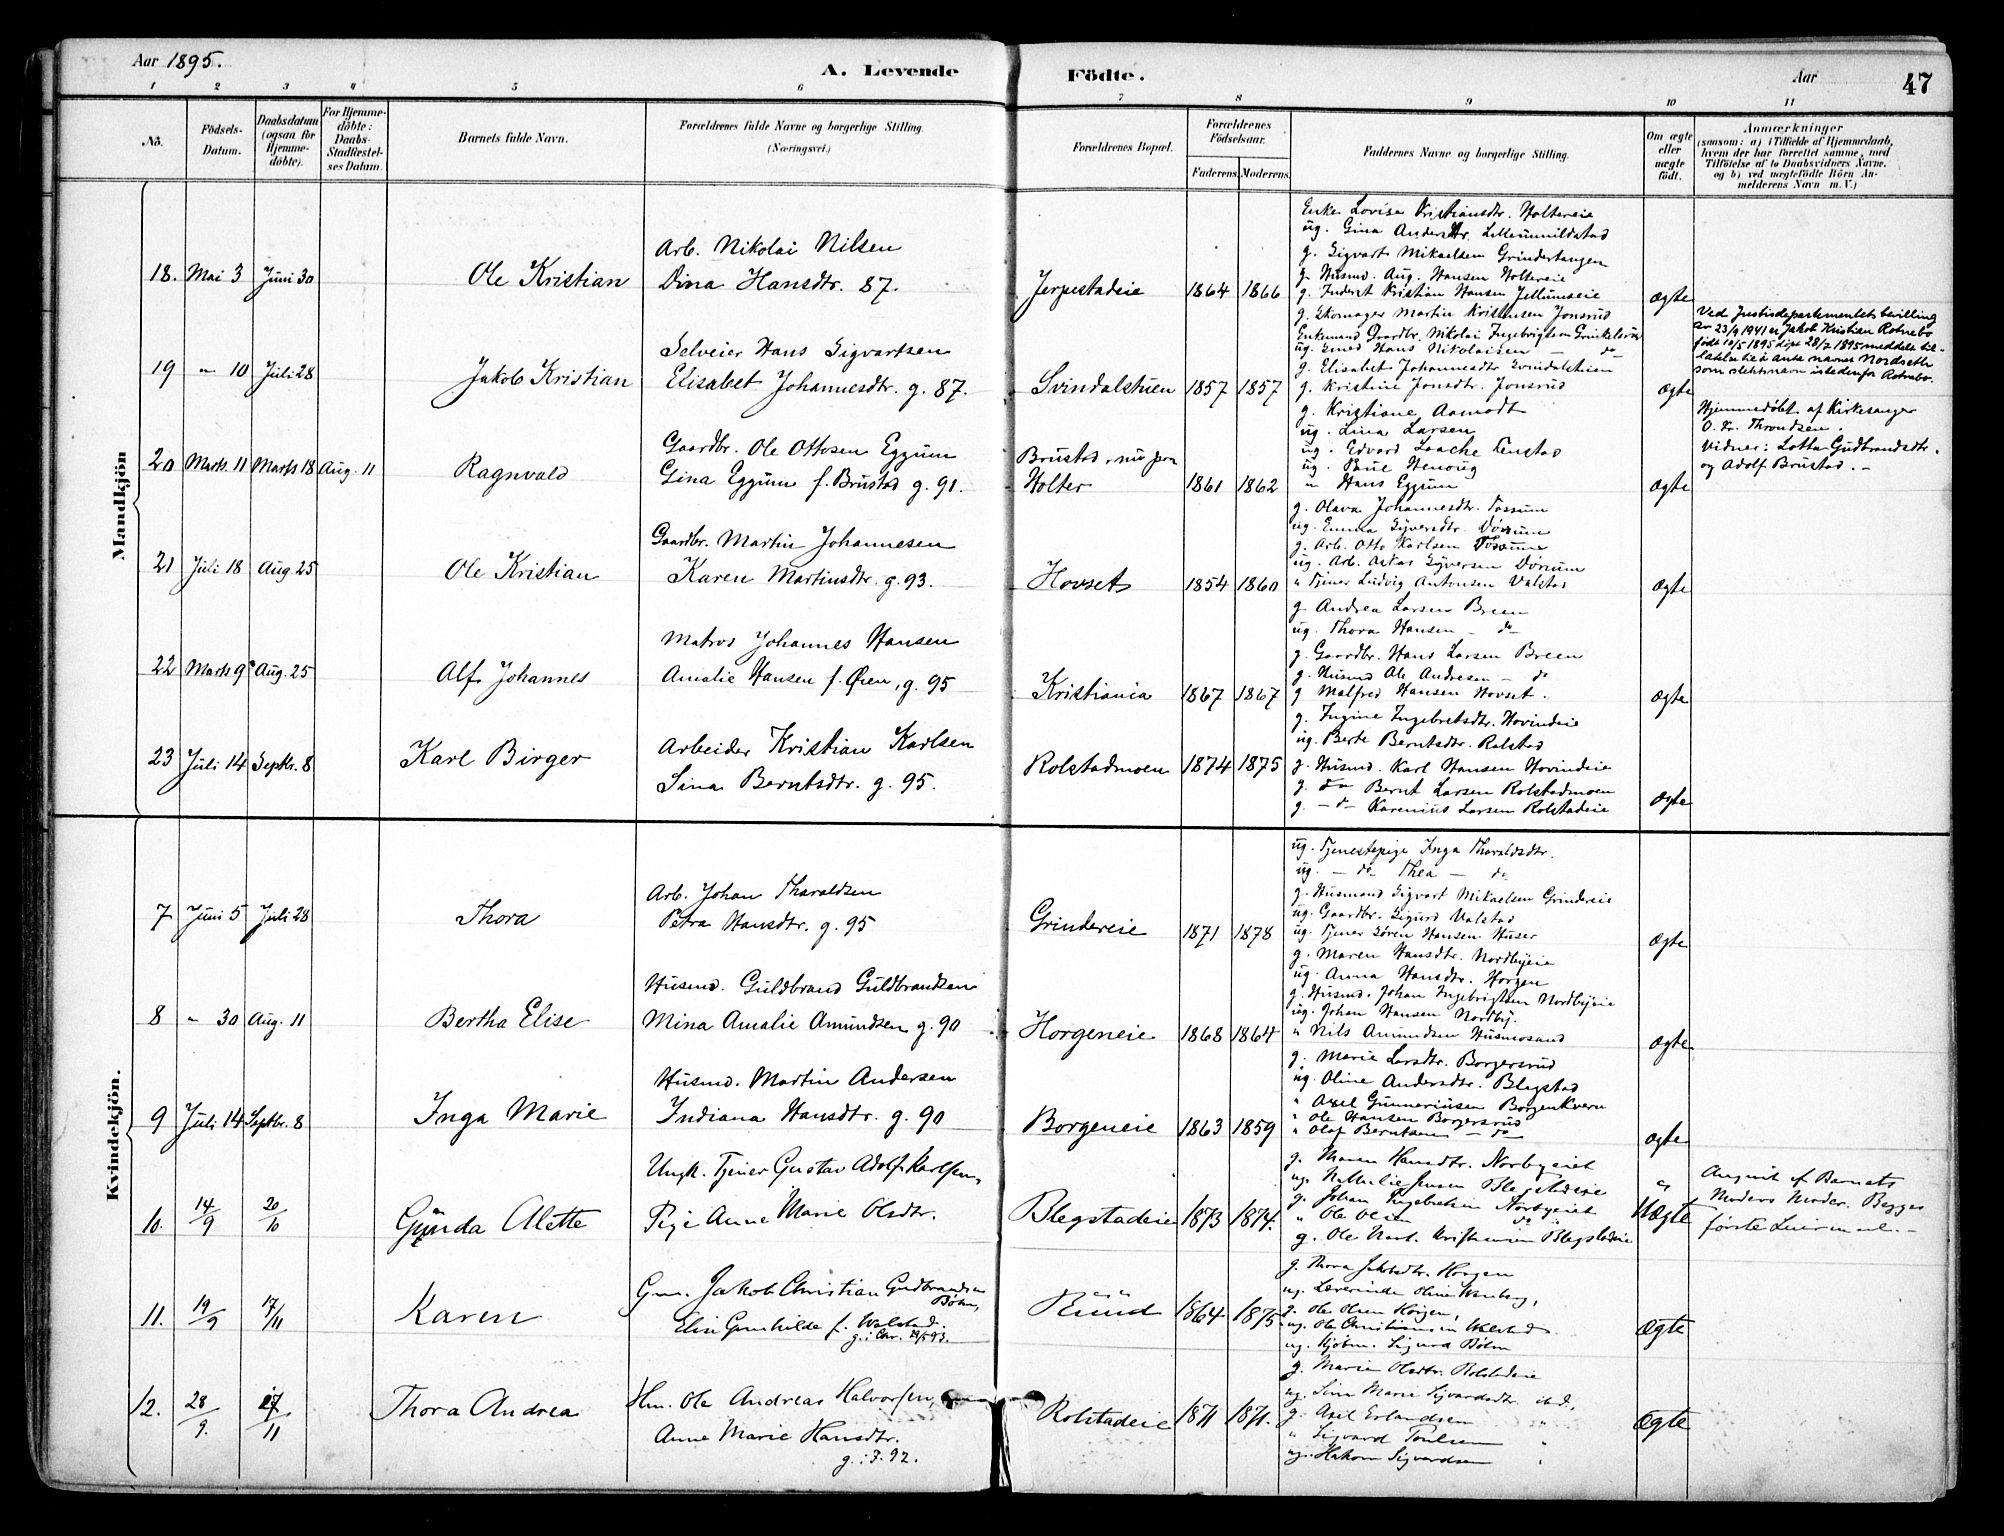 Aar 1895.
A. Levende
Födte.
Aar
47
1 2 3 4 5 6 7 8 9 10 11
No.
Födsels-Datum.
Daabsdatum (ogsaa for Hjemme-döbte).
For Hjemme-döbte: Daabs-Stadfæstel-ses Datum.
Barnets fulde Navn.
Forældrenes fulde Navne og borgerlige Stilling. (Næringsvei.)
Forældrenes Bopæl.
Forældrenes Födselsaar.
Faderens. Moderens.
Faddernes Navne og borgerlige Stilling.
Om ægte eller uægte födt.
Anmærkninger
(saasom: a) i Tilfælde af Hjemmedaab, hvem der har forrettet samme, med Tilföielse af to Daabsvidners Navne. og b) ved uægtefödte Börn An-melderens Navn m. V.)
Mandkjön
18. Mai 3 Juni 30 Ole Kristian
Arb. Nikolai Nilsen
Dina Hansdtr. 87.
Jerpestadeie 1864 1866
Enke Lovise Kristiansdtr. Holtereie
ug. Gina Andersdtr.
g. Sigvart Mikaelsen Grindertangen
g. Husmd. Aug. Hansen Holtereie
g. Inderst Kristian Hansen
g. Skomager Martin Kristiansen Jonsrud
ægte
19 " 10 Juli 28 Jakob Kristian
Selveier Hans Sigvartsen
Elisabet Johannesdtr. g. 87.
Svindalstuen 1857 1857
Enkemand Gaardbr. Nikolai Ingebrigtsen
ug. Hans Nikolaisen - do
g. Elisabet Johannesdtr Svindalstuen
g. Kristine Jonsdtr. Jonsrud
ægte
Ved Justisdepartementets bevilling
av 23/9 1941 er Jakob Kristian Rotnebo
født 10/5 1895 døpt 28/7 1895 meddelt til-
latelse til å anta navnet Nordseth
som slektsnavn istedenfor Rotnebo.
20 Marts 11 Marts 18 Aug. 11 Ragnvald
Gaardbr. Ole Ottosen Eggum
Gina Eggum f. Brustad g. 91.
Brustad, nu paa
Holter 1861 1862
g. Kristiane Aamodt
ug. Lina Larsen
ug. Edvard Laache
ug. Paul Henoug
" Hans Eggum
ægte
Hjemmedøbt af Kirkesanger
O. Kr. Throndsen.
Vidner: Lotta Gudbrandsdtr.
og Adolf Brustad. -
21 Juli 18 Aug. 25 Ole Kristian
Gaardbr. Martin Johannesen
Karen Martinsdtr. g. 93.
Hovset 1854 1860
g. Olava Johannesdtr. Tossum
ug. Emma Syversdtr. Dørum
g. Arb. Otto Karlsen Tossum
ug. Arb. Syversen Dørum
" Tjener Ludvig Antonsen Valstad
ægte
22 Marts 9 Aug. 25 Alf Johannes
Matros Johannes Hansen
Amalie Hansen f. Øien, g. 95
Kristiania 1867 1867
g. Andrea Larsen Breen
ug. Thora Hansen - do
g. Gaardbr. Hans Larsen Breen
g. Husmd Ole Andresen - do
g Malfred Hansen Hovset.
ægte
23 Juli 14 Septbr. 8 Karl Birger
Arbeider Kristian Karlsen
Sina Berntsdtr. g. 95.
Rolstadmoen 1874 1875
g. Ingine Ingebretsdtr. Hovindeie
ug. Berte Berntsdtr. Rolstad
g. Husmd. Karl Hansen Hovindeie
g. do Bernt Larsen Rolstadmoen
g. - do - Karenius Larsen Rolstadeie
ægte
Kvindekjön.
7 Juni 5 Juli 28 Thora
Arb. Johan Tharaldsen
Petra Hansdtr. g. 95
Grindereie 1871 1878
ug. Tjenestepige Inga Tharaldsdtr.
ug. - do - Thea - do
g. Husmand Sigvart Mikaelsen Grindereie
ug. Gaardbr. Sigurd Valstad
ug. Tjener Søren Hansen Huser
ægte
8 " 30 Aug. 11 Bertha Elise
Husmd. Guldbrand Guldbrandsen
Mina Amalie Amundsen g. 90
Horgeneie 1868 1864
g. Maren Hansdtr. Nordbyeie
ug. Anna Hansdtr. Horgen
g. Husmd. Johan Ingebrigtsen Nordbyeie
ug. Johan Hansen Nordby.
" Nils Amundsen Husmosand
ægte
9 Juli 14 Septbr. 8 Inga Marie
Husmd. Martin Andersen
Indiana Hansdtr. g. 90
Borgeneie 1863 1859
g. Marie Larsdtr. Borgersrud
ug. Oline Andersdtr. Blegstad
" Axel Gunneriusen Borgenkvern
" Ole Hansen Borgersrud
" Olaf Berntsen - do
ægte
10. 14/9 20/10 Gunda Alette
Ungk. Tjener Gustav Adolf Karlsen,
Pige Anne Marie Olsdtr.
Blegstadeie 1873 1874.
g. Maren Hansdtr. Norbyeiet
ug. Nathalie Jensen Blegstadeie
g. Johan Ingebretsen Norbyeiet
" Ole Olsen do
g. Ole Mart. Kristiansen Blegstadeie
Uægte
Angivit af Barnets
Moders Moder. Begges
første Leiermaal. -
11. 19/9 17/11 Karen
Gm. Jakob Christian Gudbrandsen
Bøhn,
Elise Gunhilde f. Walstad.
g. i Chr. 29/5 93.
Ruud 1864 1875
g. Thora Jakobsdtr. Horgen
ug. Lærerinde Oline Wenberg,
g. Ole Olsen Horgen,
ug. Ole Christiansen Walstad.
ug. Kjøbm. Sigurd Bøhn
Ægte
12. 28/9. 17/11 Thora Andrea
Hm. Ole Andreas Halvorsen,
Anne Marie Hansdtr.
g. i F. 92.
Rolstadeie 1871 1871.
g. Marie Olsdtr. Rolstadeie
ug. Sina Marie Sigvardsdtr. ibd,
g. Axel Erlandsen "
" Sigvard Paulsen "
ug. Hakon Sigvardsen "
Ægte